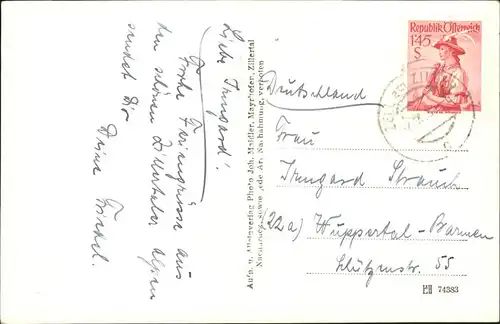 Liebe Irmgard!
Frohe Feriengrüsse aus
den schönen Zillertaler Alpen
sendet Dir
Deine
Aufn. u. Alleinverlag Photo Joh. Moidler, Mayrhofen, Zillertal
Nachdruck, sowie jede Art Nachahmung, verboten
Republik Österreich
1.45
S
Deutschland
Frau
Irmgard Strauch
(22a) Wuppertal-Barmen
Schützenstr. 55
74383